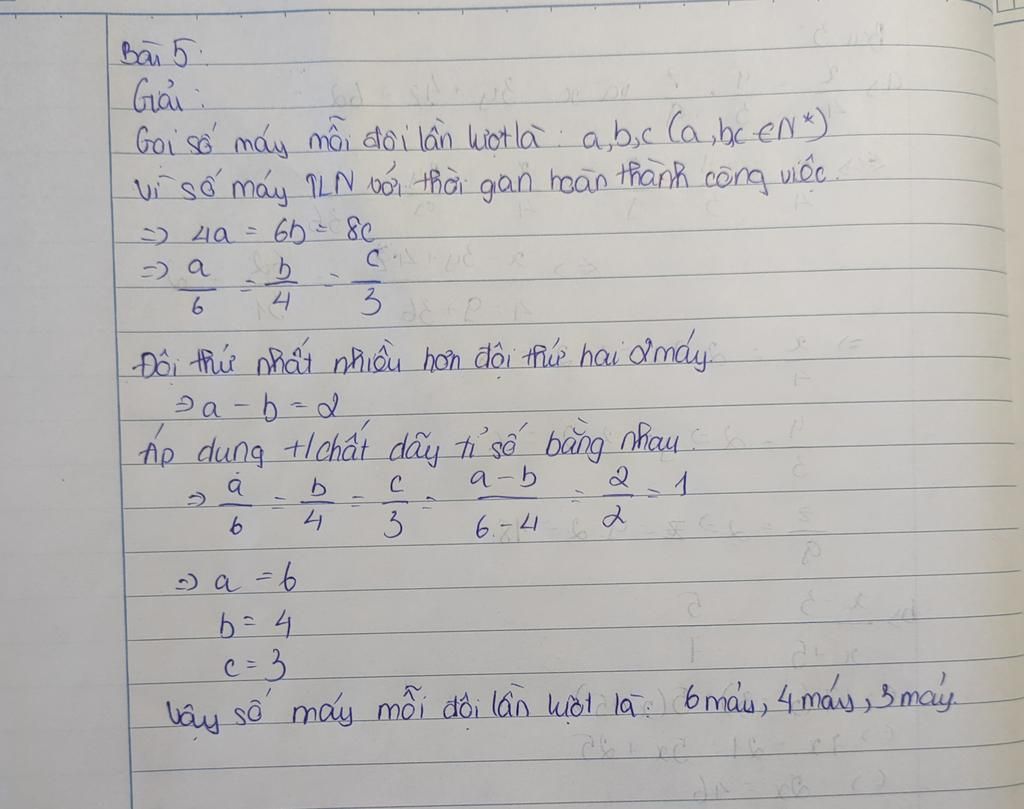 Bài 5:
Giải:
Gọi số máy mỗi đội lần lượt là: a, b, c (a, b, c ∈ N*)
Vì số máy TLN với thời gian hoàn thành công việc.
=> 4a = 6b = 8c
=> a/6 = b/4 = c/3
Đội thứ nhất nhiều hơn đội thứ hai 2 máy.
=> a - b = 2
Áp dụng t/chất dãy tỉ số bằng nhau:
=> a/6 = b/4 = c/3 = (a-b)/(6-4) = 2/2 = 1
=> a = 6
b = 4
c = 3
Vậy số máy mỗi đội lần lượt là: 6 máy, 4 máy, 3 máy.